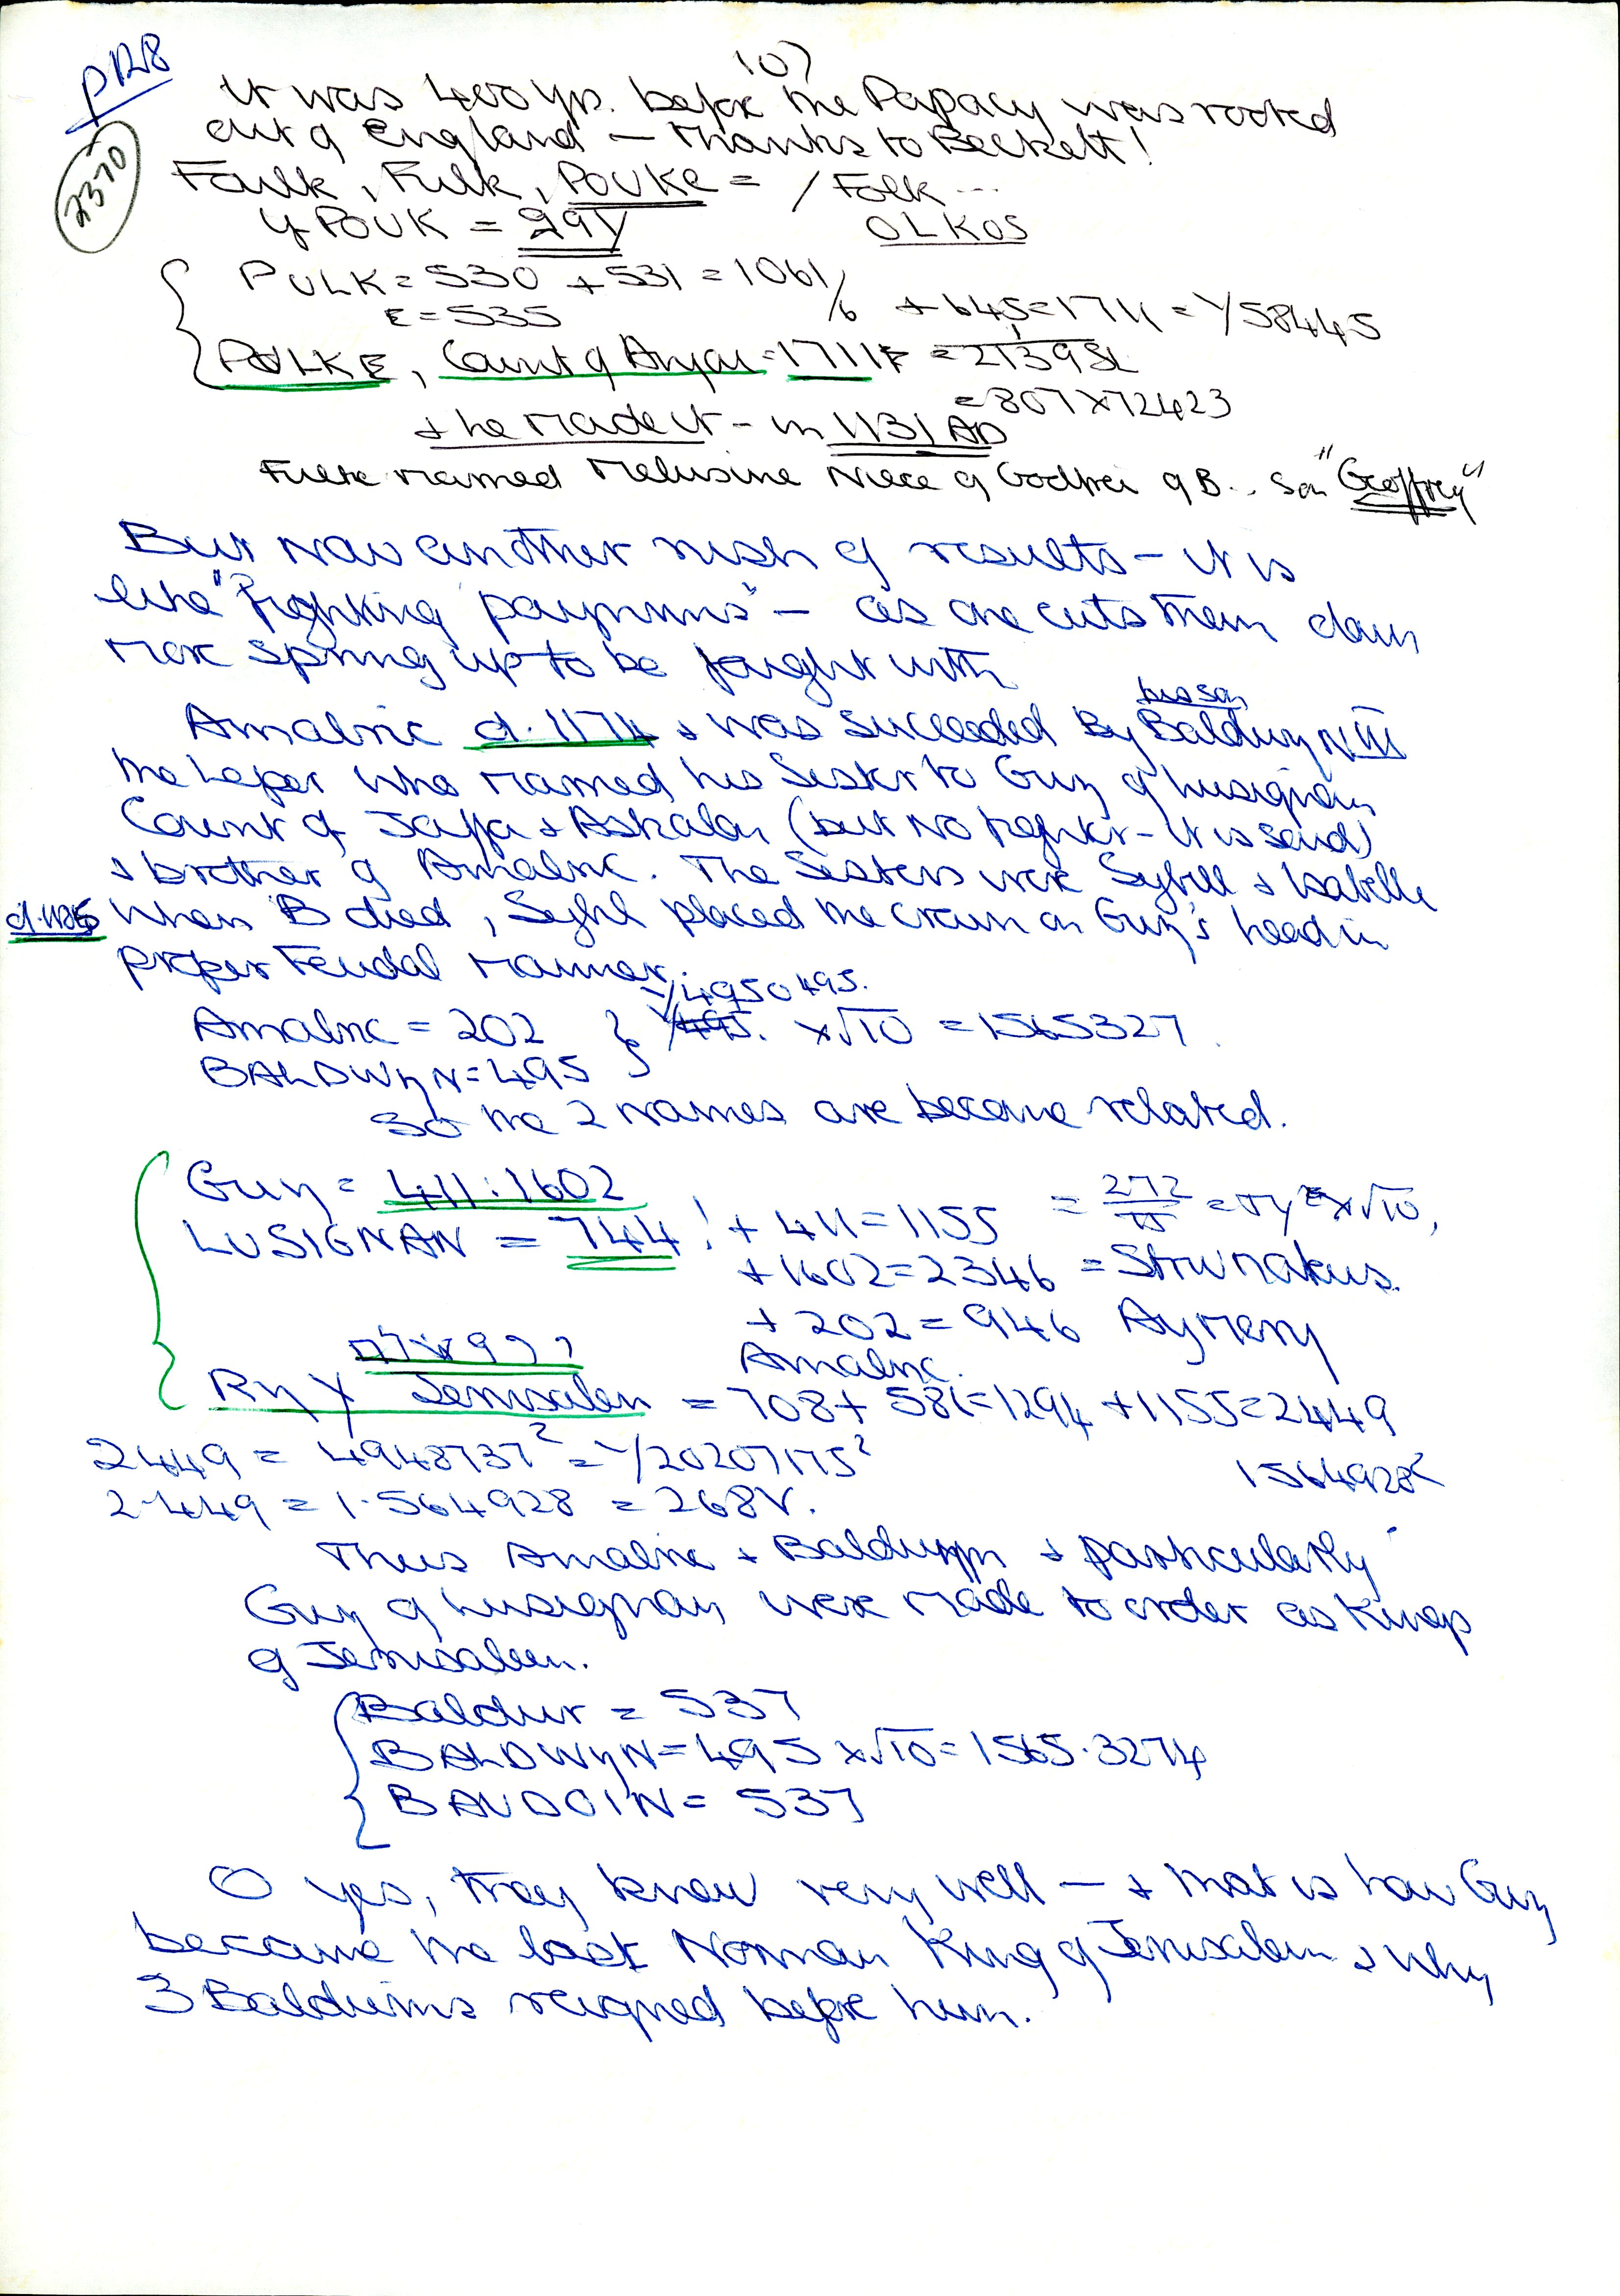 107
p128
2370
It was 400 yrs. before the Papacy was rooted
out of England – Thanks to Beckett!
Faulk, Fulk, POUKE = / Folk ...
if POUK = 99Y OLKOS
PULK = 530 + 531 = 1061/6 + 645 = 1711 = Y58445
E = 535
POLKE, Count of Anjou = 1711 = 21398L
= 807 x 72423
& he made it – in 1131 AD
Fulke married Melusine Niece of Godfrei of B.. Son "Geoffrey"
But now another rush of results – it is
like "fighting paynims" – as one cuts them down
more spring up to be fought with
his son
Amalric d. 1174 & was succeeded By Baldwyn
the Leper who married his Sister to Guy of Lusignan
Count of Jaffa & Askalon (but no fighter – it is said)
& brother of Amalric. The Sisters were Sybill & Isabelle
When B died, Sybil placed the crown on Guy's head in
proper Feudal manner.
Y4950495.
Amalric = 202 x √10 = 1565327.
BALDWyN = 495
So the 2 names are become related.
Guy = 411 : 1602
LUSIGNAN = 744! + 411 = 1155 = 272/
+ 1602 = 2346 =
+ 202 = 946 Aymery
Amalric.
Jerusalem = 708 + 586 = 1294 + 1155 = 2449
2449 = 4948737² = Y20207175²
1564928
2.449 = 1.564928 = 268V.
Thus Amalric & Baldwyn & particularly
Guy of Lusignan were made to order as Kings
of Jerusalem.
Baldur = 537
BALDWyN = 495 x √10 = 1565.3274
BAUDOIN = 537
O yes, they knew very well – & that is how Guy
became the last Norman King of Jerusalem & why
3 Baldwins reigned before him.